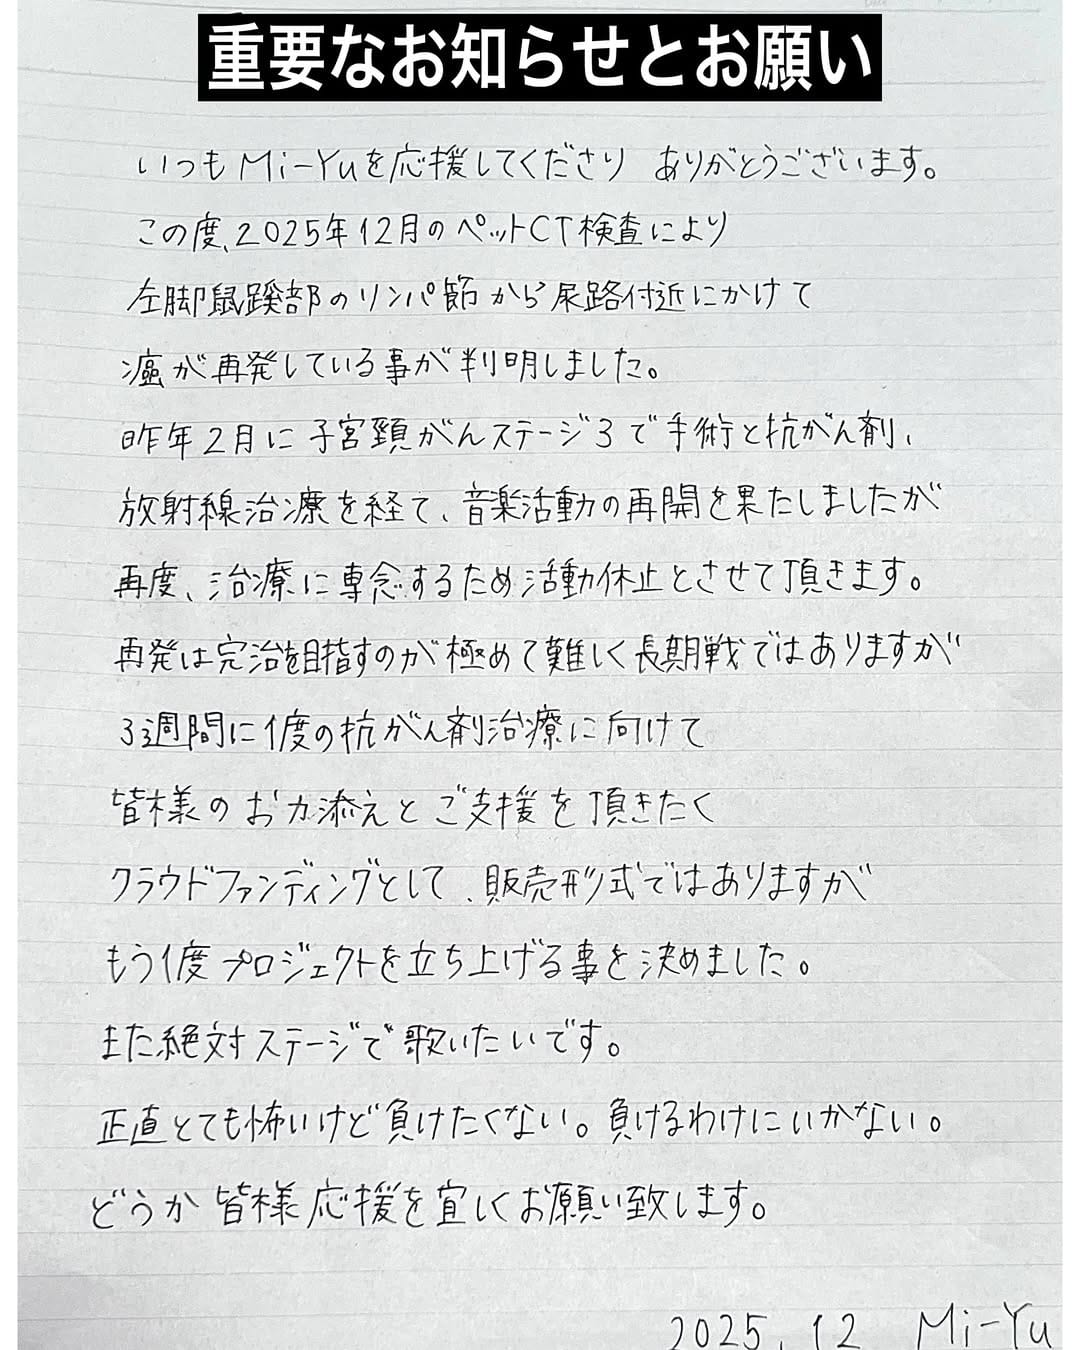 重要なお知らせとお願い
いつもMi-Yuを応援してくださり ありがとうございます。
この度、2025年12月のペットCT検査により
左脚鼠蹊部のリンパ節から尿路付近にかけて
癌が再発している事が判明しました。
昨年2月に子宮頸がんステージ3で手術と抗がん剤、
放射線治療を経て、音楽活動の再開を果たしましたが
再度、治療に専念するため活動休止とさせて頂きます。
再発は完治を目指すのが極めて難しく長期戦ではありますが
3週間に1度の抗がん剤治療に向けて
皆様のお力添えとご支援を頂きたく
クラウドファンディングとして、販売形式ではありますが
もう1度プロジェクトを立ち上げる事を決めました。
また絶対ステージで歌いたいです。
正直とても怖いけど負けたくない。負けるわけにいかない。
どうか皆様応援を宜しくお願い致します。
2025.12 Mi-Yu